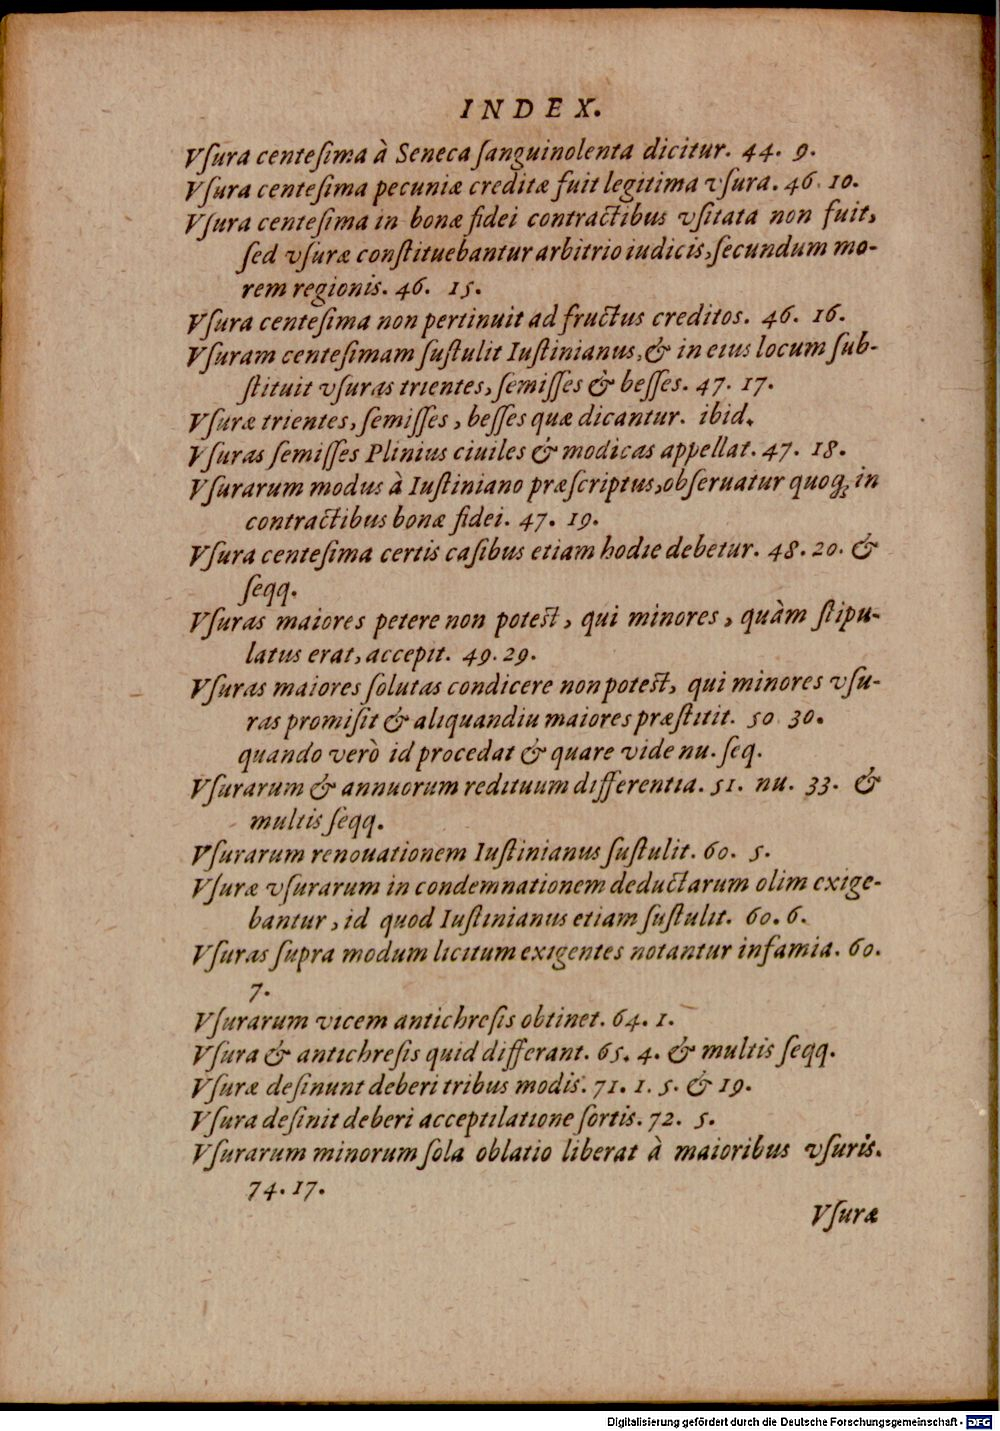 INDEX.
Vſura centeſima à Seneca ſanguinolenta dicitur. 44. 9.
Vſura centeſima pecuniæ creditæ fuit legitima vſura. 46. 10.
Vſura centeſima in bonæ fidei contractibus vſitata non fuit,
ſed vſuræ conſtituebantur arbitrio iudicis, ſecundum mo-
rem regionis. 46. 15.
Vſura centeſima non pertinuit ad fructus creditos. 46. 16.
Vſuram centeſimam ſuſtulit Iuſtinianus, & in eius locum ſub-
ſtituit vſuras trientes, ſemiſſes & beſſes. 47. 17.
Vſuræ trientes, ſemiſſes, beſſes quæ dicantur. ibid.
Vſuras ſemiſſes Plinius ciuiles & modicas appellat. 47. 18.
Vſurarum modus à Iuſtiniano præſcriptus, obſeruatur quoq; in
contractibus bonæ fidei. 47. 19.
Vſura centeſima certis caſibus etiam hodie debetur. 48. 20. &
ſeqq.
Vſuras maiores petere non poteſt, qui minores, quàm ſtipu-
latus erat, accepit. 49. 29.
Vſuras maiores ſolutas condicere non poteſt, qui minores vſu-
ras promiſit & aliquandiu maiores præſtitit. 50 30.
quando verò id procedat & quare vide nu. ſeq.
Vſurarum & annuorum redituum differentia. 51. nu. 33. &
multis ſeqq.
Vſurarum renouationem Iuſtinianus ſuſtulit. 60. 5.
Vſuræ vſurarum in condemnationem deductarum olim exige-
bantur, id quod Iuſtinianus etiam ſuſtulit. 60. 6.
Vſuras ſupra modum licitum exigentes notantur infamia. 60.
7.
Vſurarum vicem antichreſis obtinet. 64. 1.
Vſura & antichreſis quid differant. 65. 4. & multis ſeqq.
Vſuræ deſinunt deberi tribus modis. 71. 1. 5. & 19.
Vſura deſinit deberi acceptilatione ſortis. 72. 5.
Vſurarum minorum ſola oblatio liberat à maioribus vſuris.
74. 17.
Vſuræ
Digitalisierung gefördert durch die Deutsche Forschungsgemeinschaft - DFG